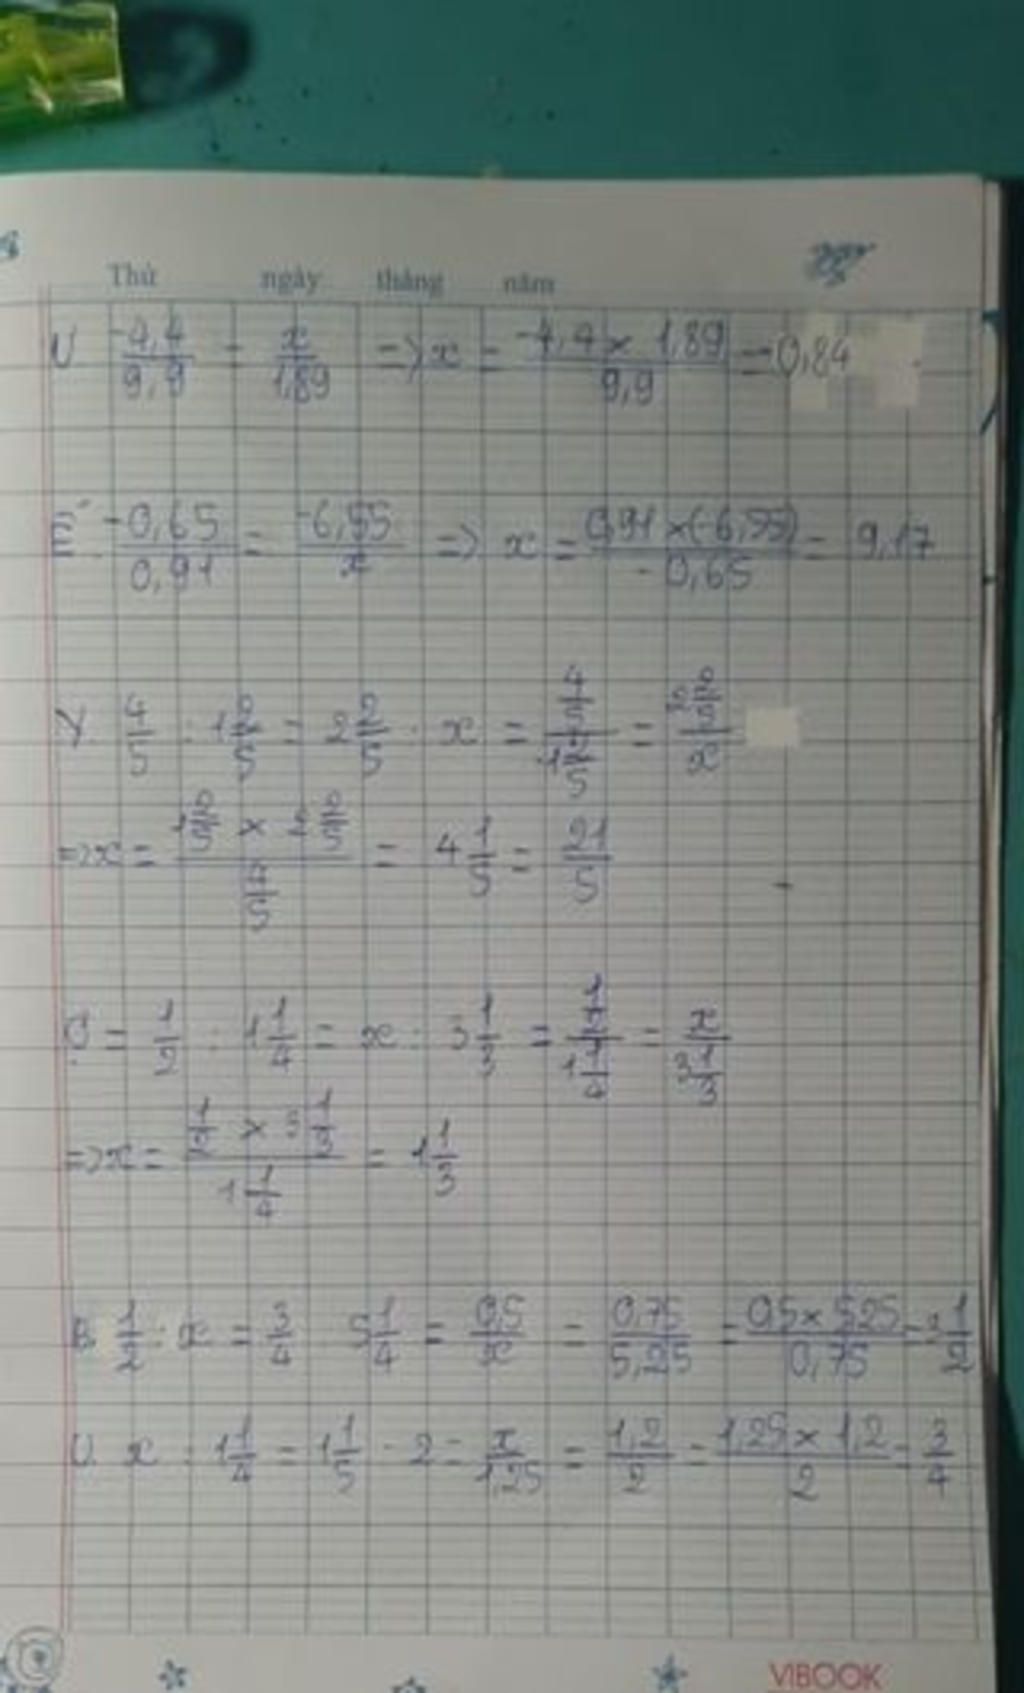 Thứ ngày tháng năm
U -4,4/9,9 = x/1,89 => x = -4,4 × 1,89/9,9 = -0,84
Ế -0,65/0,91 = -6,55/x => x = 0,91 × (-6,55)/-0,65 = 9,17
Y. 4/5 : 1 2/5 = 2 2/5 : x = 4/5/1 2/5 = 2 2/5/x
=> x = 1 2/5 × 2 2/5/4/5 = 4 1/5 = 21/5
= 1/2 : 1 1/4 = x : 3 1/3 = 1/2/1 1/4 = x/3 1/3
=> x = 1/2 × 3 1/3/1 1/4 = 1 1/3
B. 1/2 : x = 3/4 5 1/4 = 0,5/x = 0,75/5,25 = 0,5 × 5,25/0,75 = 3 1/2
U. x : 1 1/4 = 1 1/5 : 2 = x/1,25 = 1,2/2 = 1,25 × 1,2/2 = 3/4
VIBOOK